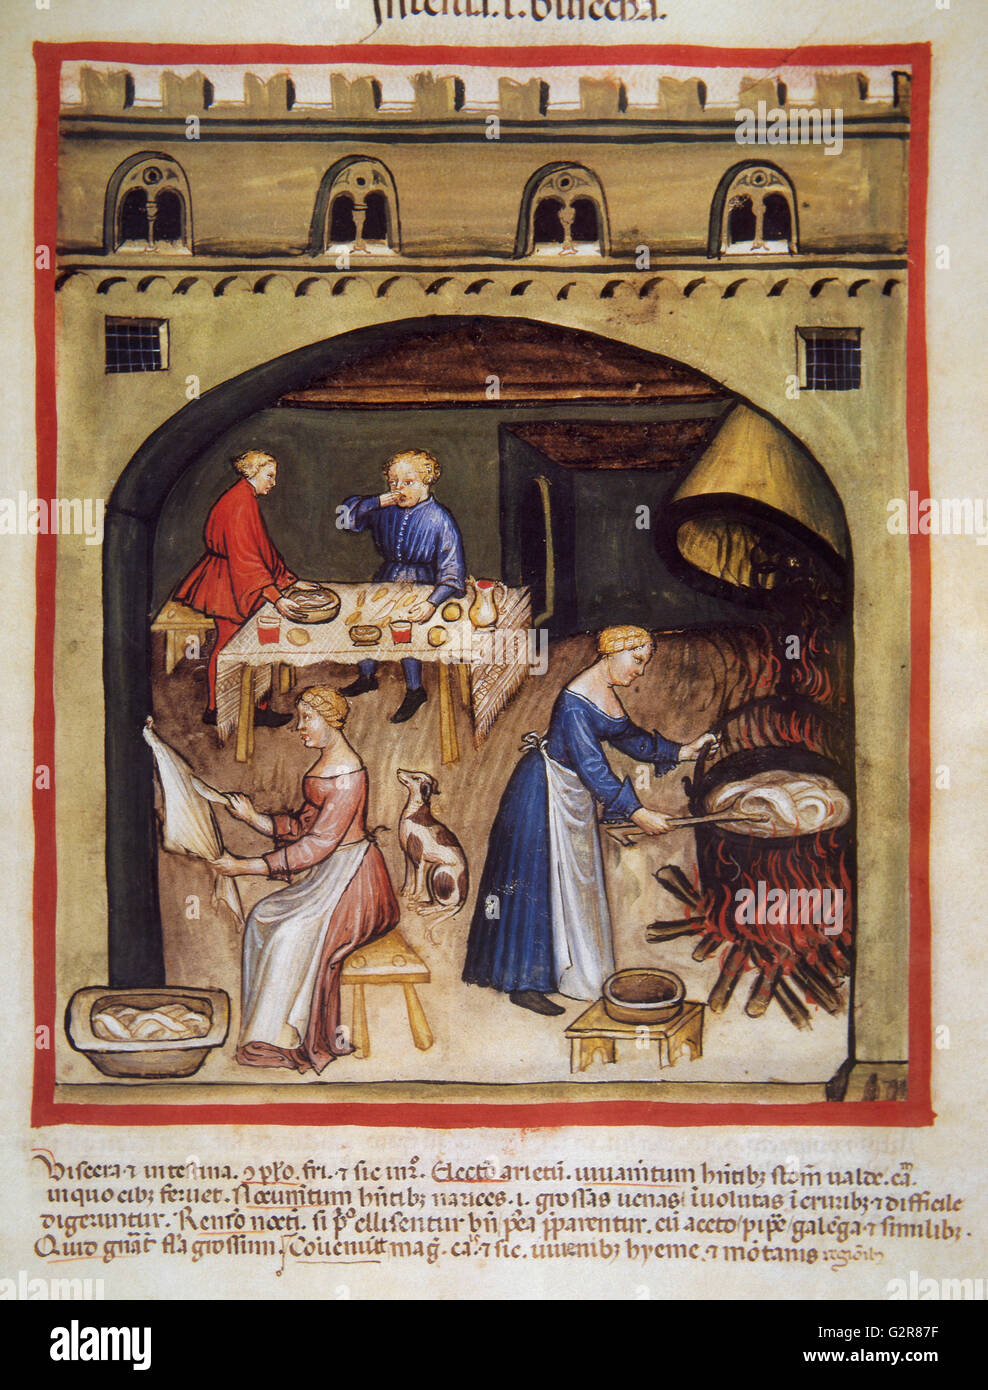 Intestina. i. busecha.
Viscera ⁊ intestina. ꝯplo. fri. ⁊ sic. in 2o. Electo arietũ. iuuamtum hñtibꝫ stom ualde. cam
in quo cibꝫ feruet. Nocumtum hñtibꝫ uarices. i. grossas uenas iuolutas i cruribꝫ ⁊ difficile
digeruntur. Remo nocti. si po ellisentur bñ pea pparentur. cũ aceto pipe galega ⁊ similibꝫ.
Quid gnat fla grossum Coueniut mag. cais ⁊ sic. iuuenibꝫ hyeme. ⁊ motanis regioibꝫ
alamy
Image ID: G2R87F
www.alamy.com